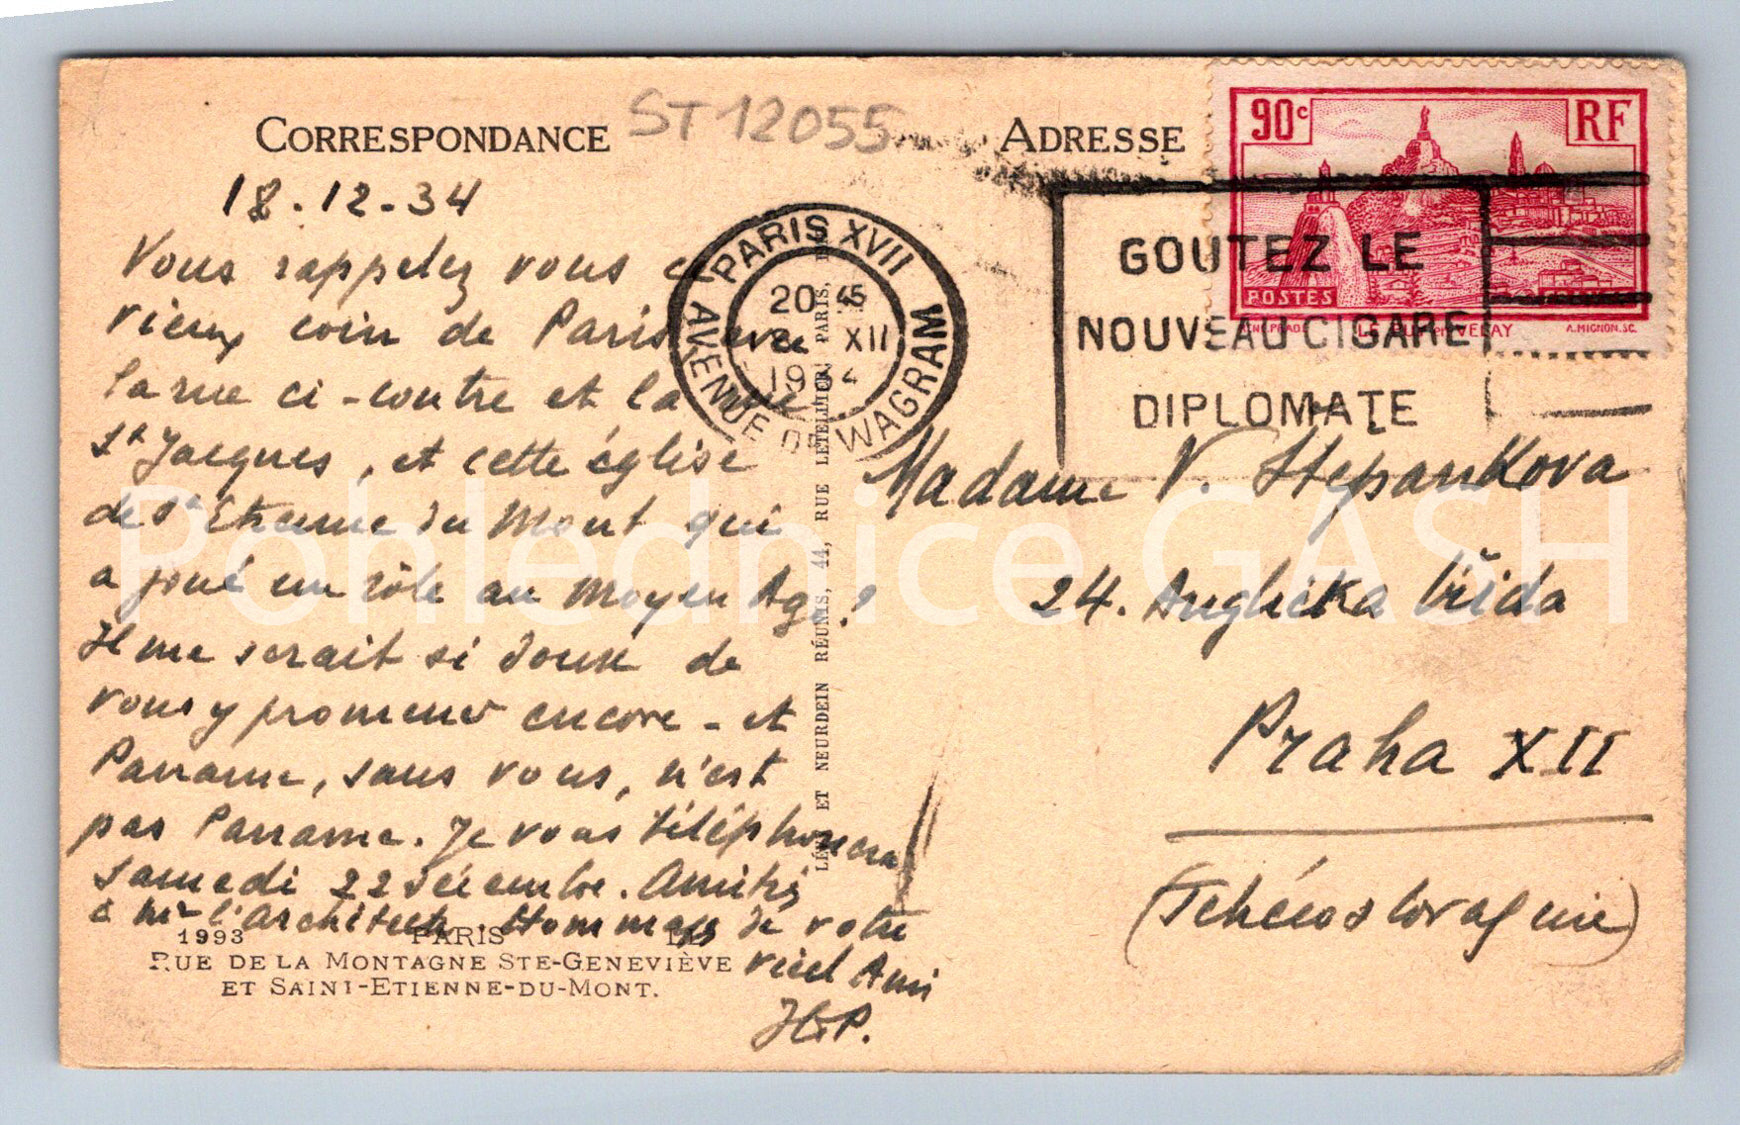 CORRESPONDANCE
ST12055
ADRESSE
90c
RF
POSTES
LE PUY en VELAY
A. MIGNON. SC.
PARIS XVII
AVENUE DE WAGRAM
20 45
XII
1934
GOUTEZ LE
NOUVEAU CIGARE
DIPLOMATE
18.12-34
Vous rappelez vous ce
vieux coin de Paris avec
la rue ci-contre et la rue
St Jacques, et cette église
de St Etienne du Mont qui
a joué un rôle au Moyen Age ?
Il me serait si doux de
vous y promener encore - et
Paname, sans vous, n'est
pas Paname. Je vous téléphonerai
samedi 22 décembre. Amitiés
à Mr l'architecte. Hommages de votre
vieil Ami
Madame V. Stepankova
24. Anglicka třida
Praha XII
(Tchécoslovaquie)
1993 PARIS
RUE DE LA MONTAGNE STE-GENEVIÈVE
ET SAINT-ETIENNE-DU-MONT.
LÉVY ET NEURDEIN RÉUNIS, 44, RUE LETELLIER, PARIS,
Pohlednice GASH